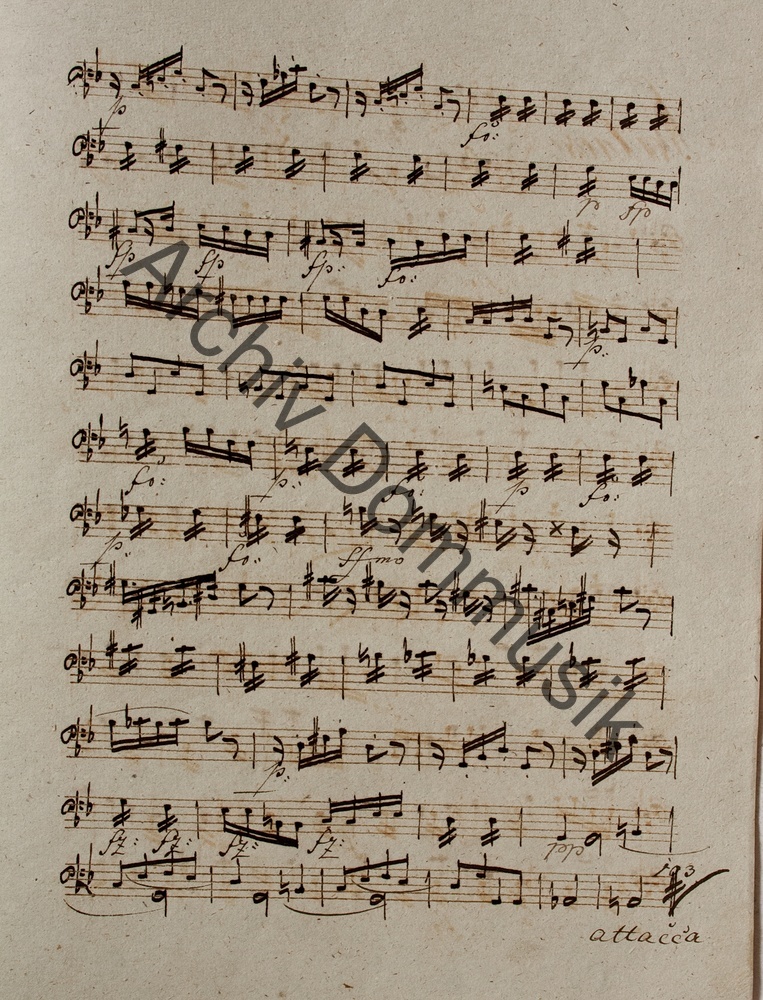 p
fo:
p fp
fp fp fp: fo:
p:
fo: p: fo: p fo:
p: fo: ffmo
p:
fz: fz: fz: fz: pp
attacca
Archiv Dommusik